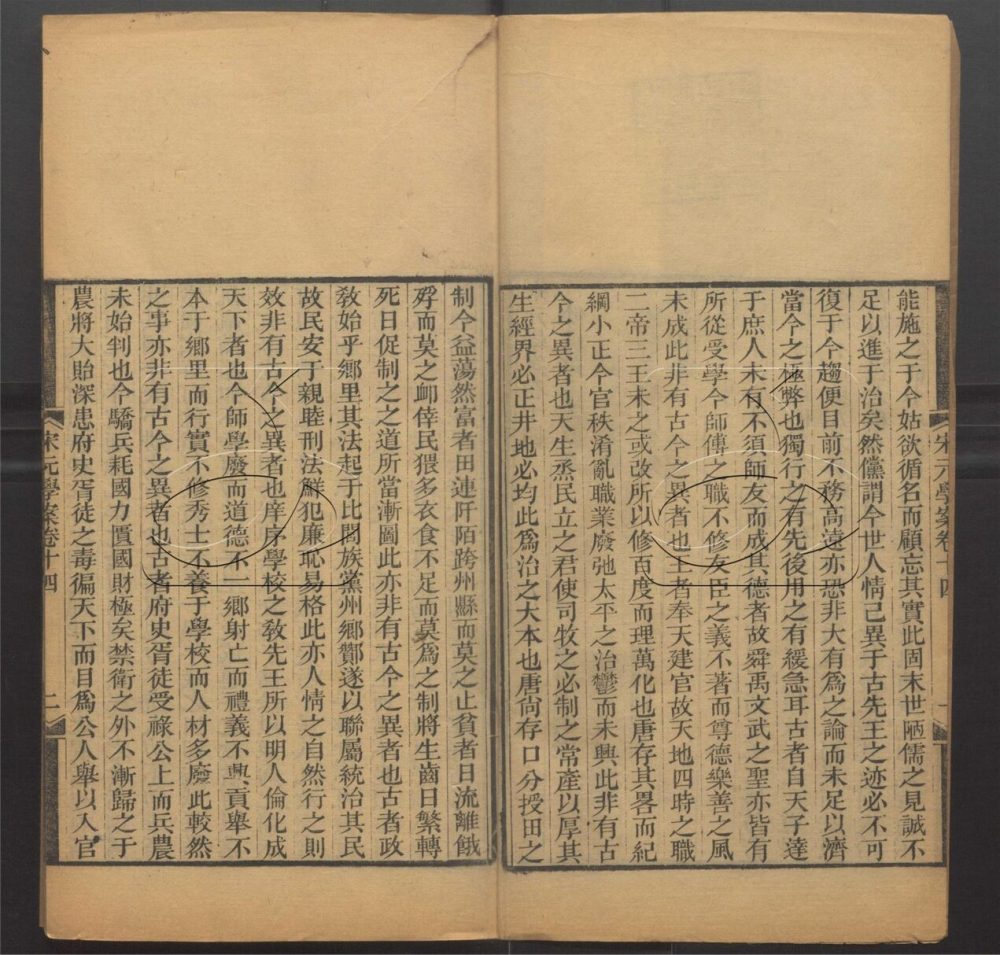 能施之于今姑欲循名而顧忘其實此固末世陋儒之見誠不
足以進于治矣然儻謂今世人情已異于古先王之迹必不可
復于今趨便目前不務高遠亦恐非大有爲之論而未足以濟
當今之極弊也獨行之有先後用之有緩急耳古者自天子達
于庶人未有不須師友而成其德者故舜禹文武之聖亦皆有
所從受學今師傅之職不修友臣之義不著而尊德樂善之風
未成此非有古今之異者也王者奉天建官故天地四時之職
二帝三王未之或改所以修百度而理萬化也唐存其畧而紀
綱小正今官秩淆亂職業廢弛太平之治鬱而未興此非有古
今之異者也天生烝民立之君使司牧之必制之常產以厚其
生經界必正井地必均此爲治之大本也唐尚存口分授田之
宋元學案卷十四
一
制今益蕩然富者田連阡陌跨州縣而莫之止貧者日流離餓
殍而莫之卹倖民猥多衣食不足而莫爲之制將生齒日繁轉
死日促制之之道所當漸圖此亦非有古今之異者也古者政
敎始乎鄉里其法起于比閭族黨州鄉酇遂以聯屬統治其民
故民安于親睦刑法鮮犯廉恥易格此亦人情之自然行之則
效非有古今之異者也庠序學校之敎先王所以明人倫化成
天下者也今師學廢而道德不一鄉射亡而禮義不興貢舉不
本于鄉里而行實不修秀士不養于學校而人材多廢此較然
之事亦非有古今之異者也古者府史胥徒受祿公上而兵農
未始判也今驕兵耗國力匱國財極矣禁衛之外不漸歸之于
農將大貽深患府史胥徒之毒徧天下而目爲公人舉以入官
宋元學案卷十四
二